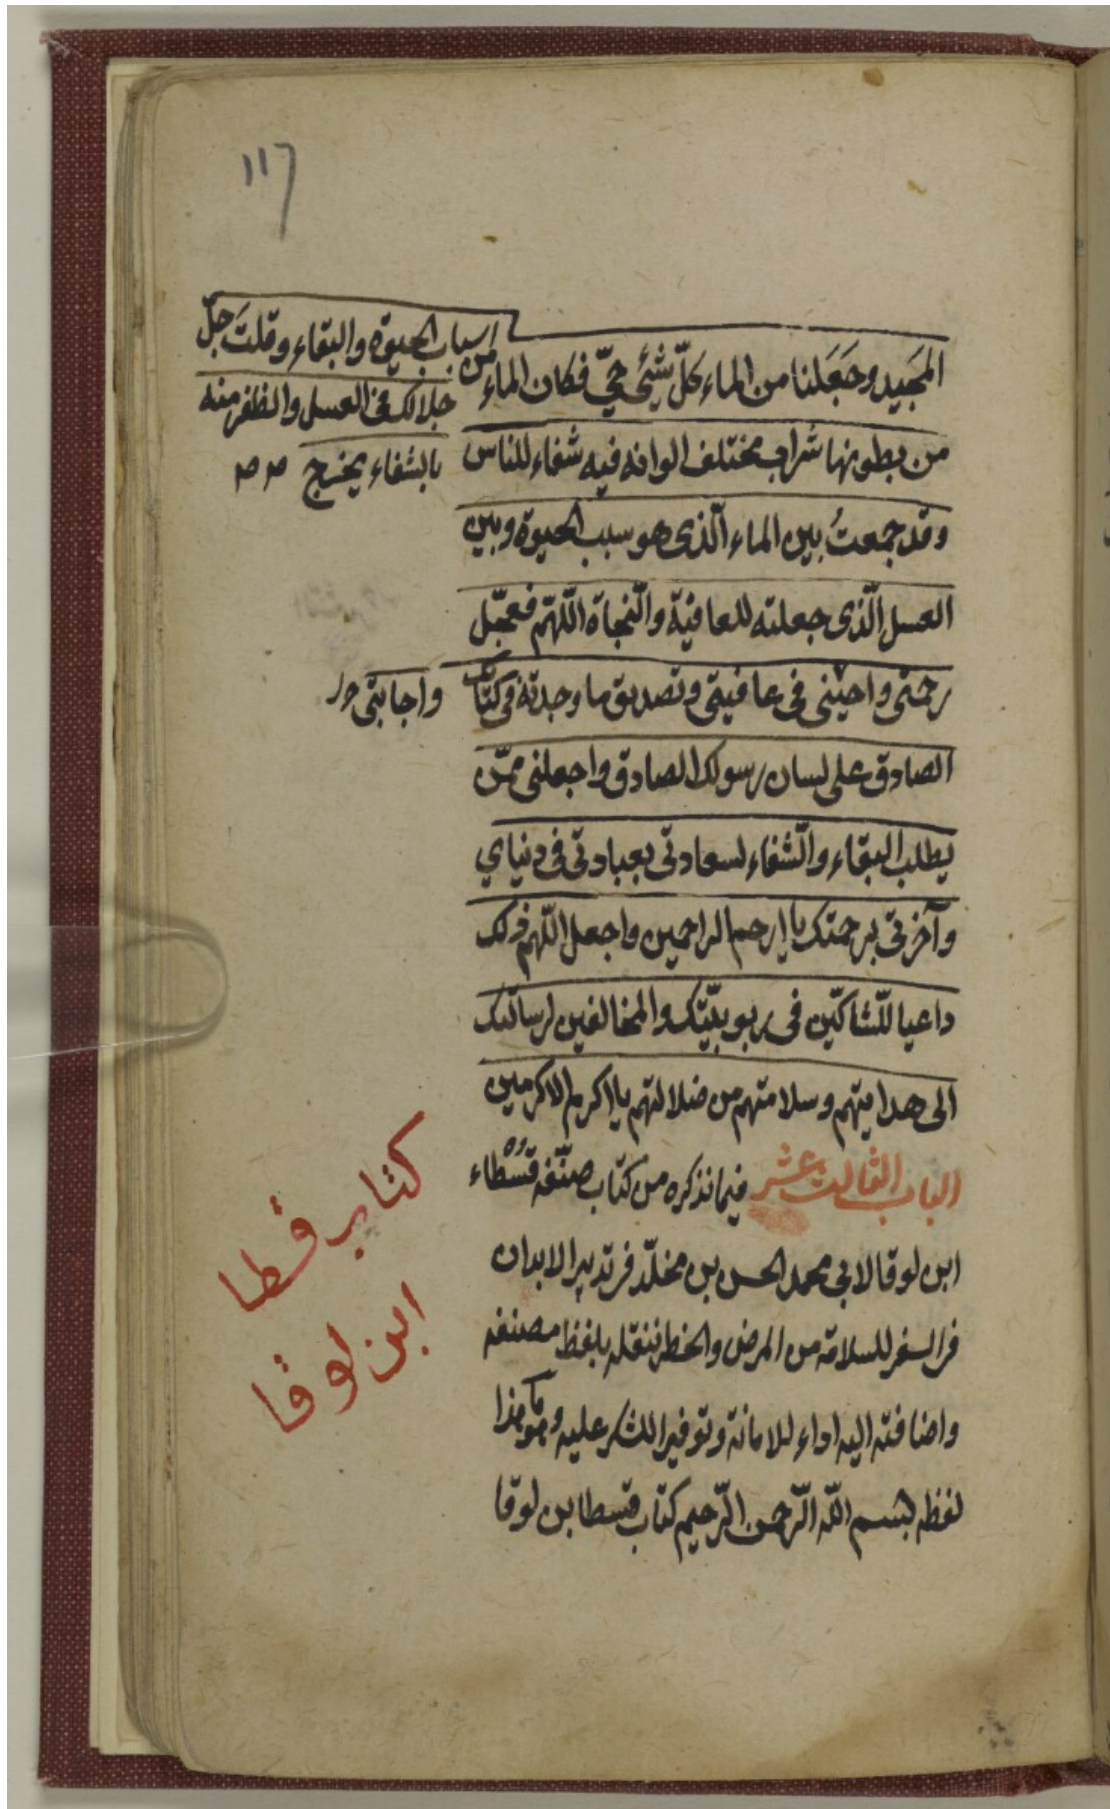 ١١٦
المجيد وجعلنا من الماء كلّ شيئ حيّ فكان الماء من
اسباب الحيوة والبقاء وقلتَ جلّ
جلالك في العسل والظفر منه
بالشفاء يخرج صح صح
من بطونها شراب مختلف الوانه فيه شفاء للناس
وقد جمعتُ بين الماء الّذى هو سبب الحيوة وبين
العسل الّذى جعلته للعافية والنّجاة اللّهمّ فعجّل
رحمتى واحينى فى عافيتى وتصديق ما وجدته فى كتابك
واجابتى
الصادق على لسان رسولك الصادق واجعلنى ممّن
يطلب البقاء والشّفاء لسعادتى بعبادتى فى دنياي
وآخرتى برحمتك يا ارحم الراحمين واجعل اللّهم ذلك
داعيا للشّاكّين فى ربوبيّتك والمخالفين لرسالتك
الى هدايتهم وسلامتهم من ضلالتهم يا اكرم الاكرمين
الباب الثالث عشر فيما نذكره من كتاب صنّفه قُسْطاء
ابن لوقا لابي محمد الحسن بن مخلّد فى تدبير الابدان
فى السفر للسلامة من المرض والخطر ننقله بلفظ مصنفه
واضافته اليه اداء للامانة وتوفير الشكر عليه وهو هذا
لفظه بسم اللّه الرّحمن الرّحيم كتاب قسطا بن لوقا
كتاب قسطا
ابن لوقا